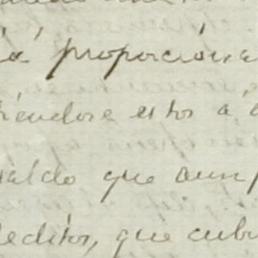 á proporciona
iéndose estos á
saldo que aun
editos, que cubr